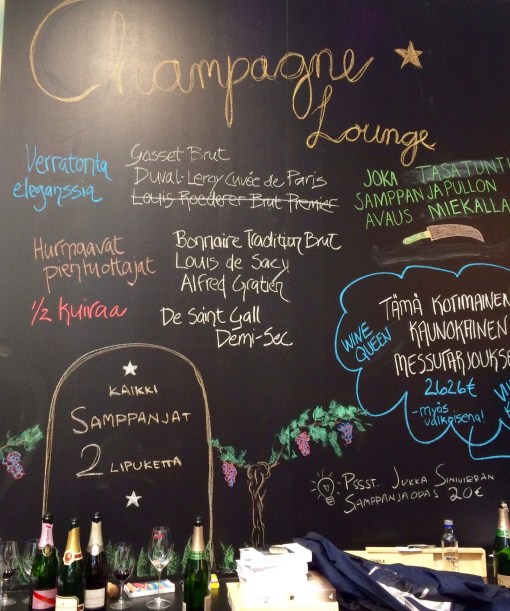 Champagne
Lounge
Verratonta
eleganssia
Gosset Brut
Duval-Leroy Cuvée de Paris
Louis Roederer Brut Premier
JOKA TASATUNTI
SAMPPANJAPULLON
AVAUS MIEKALLA
Hurmaavat
pientuottajat
Bonnaire Tradition Brut
Louis de Sacy
Alfred Gratien
1/2 kuivaa
De Saint Gall
Demi-Sec
WINE
QUEEN
TÄMÄ KOTIMAINEN
KAUNOKAINEN
MESSUTARJOUKSE
2626€
-myös
valkoisena!
KAIKKI
SAMPPANJAT
2 LIPUKETTA
-PSSST... JUKKA SINIVIRRAN
SAMPPANJAOPAS 20€